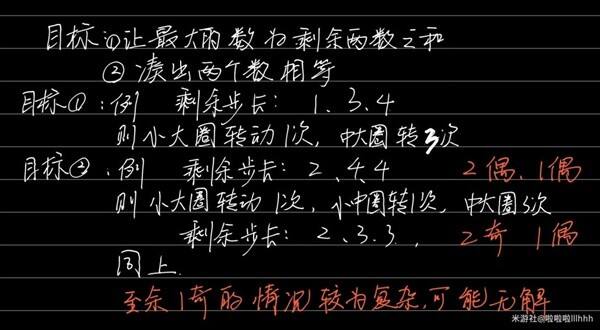 目标:①让最大的数为剩余两数之和
②凑出两个数相等
目标①:例 剩余步长: 1、3、4
则小大圈转动1次, 中大圈转3次
目标②:例 剩余步长: 2、4、4 2偶、1偶
则小大圈转动1次, 小中圈转1次, 中大圈3次
剩余步长: 2、3、3、 2奇 1偶
同上.
至余1奇的情况较为复杂,可能无解
米游社@啦啦啦lllhhh